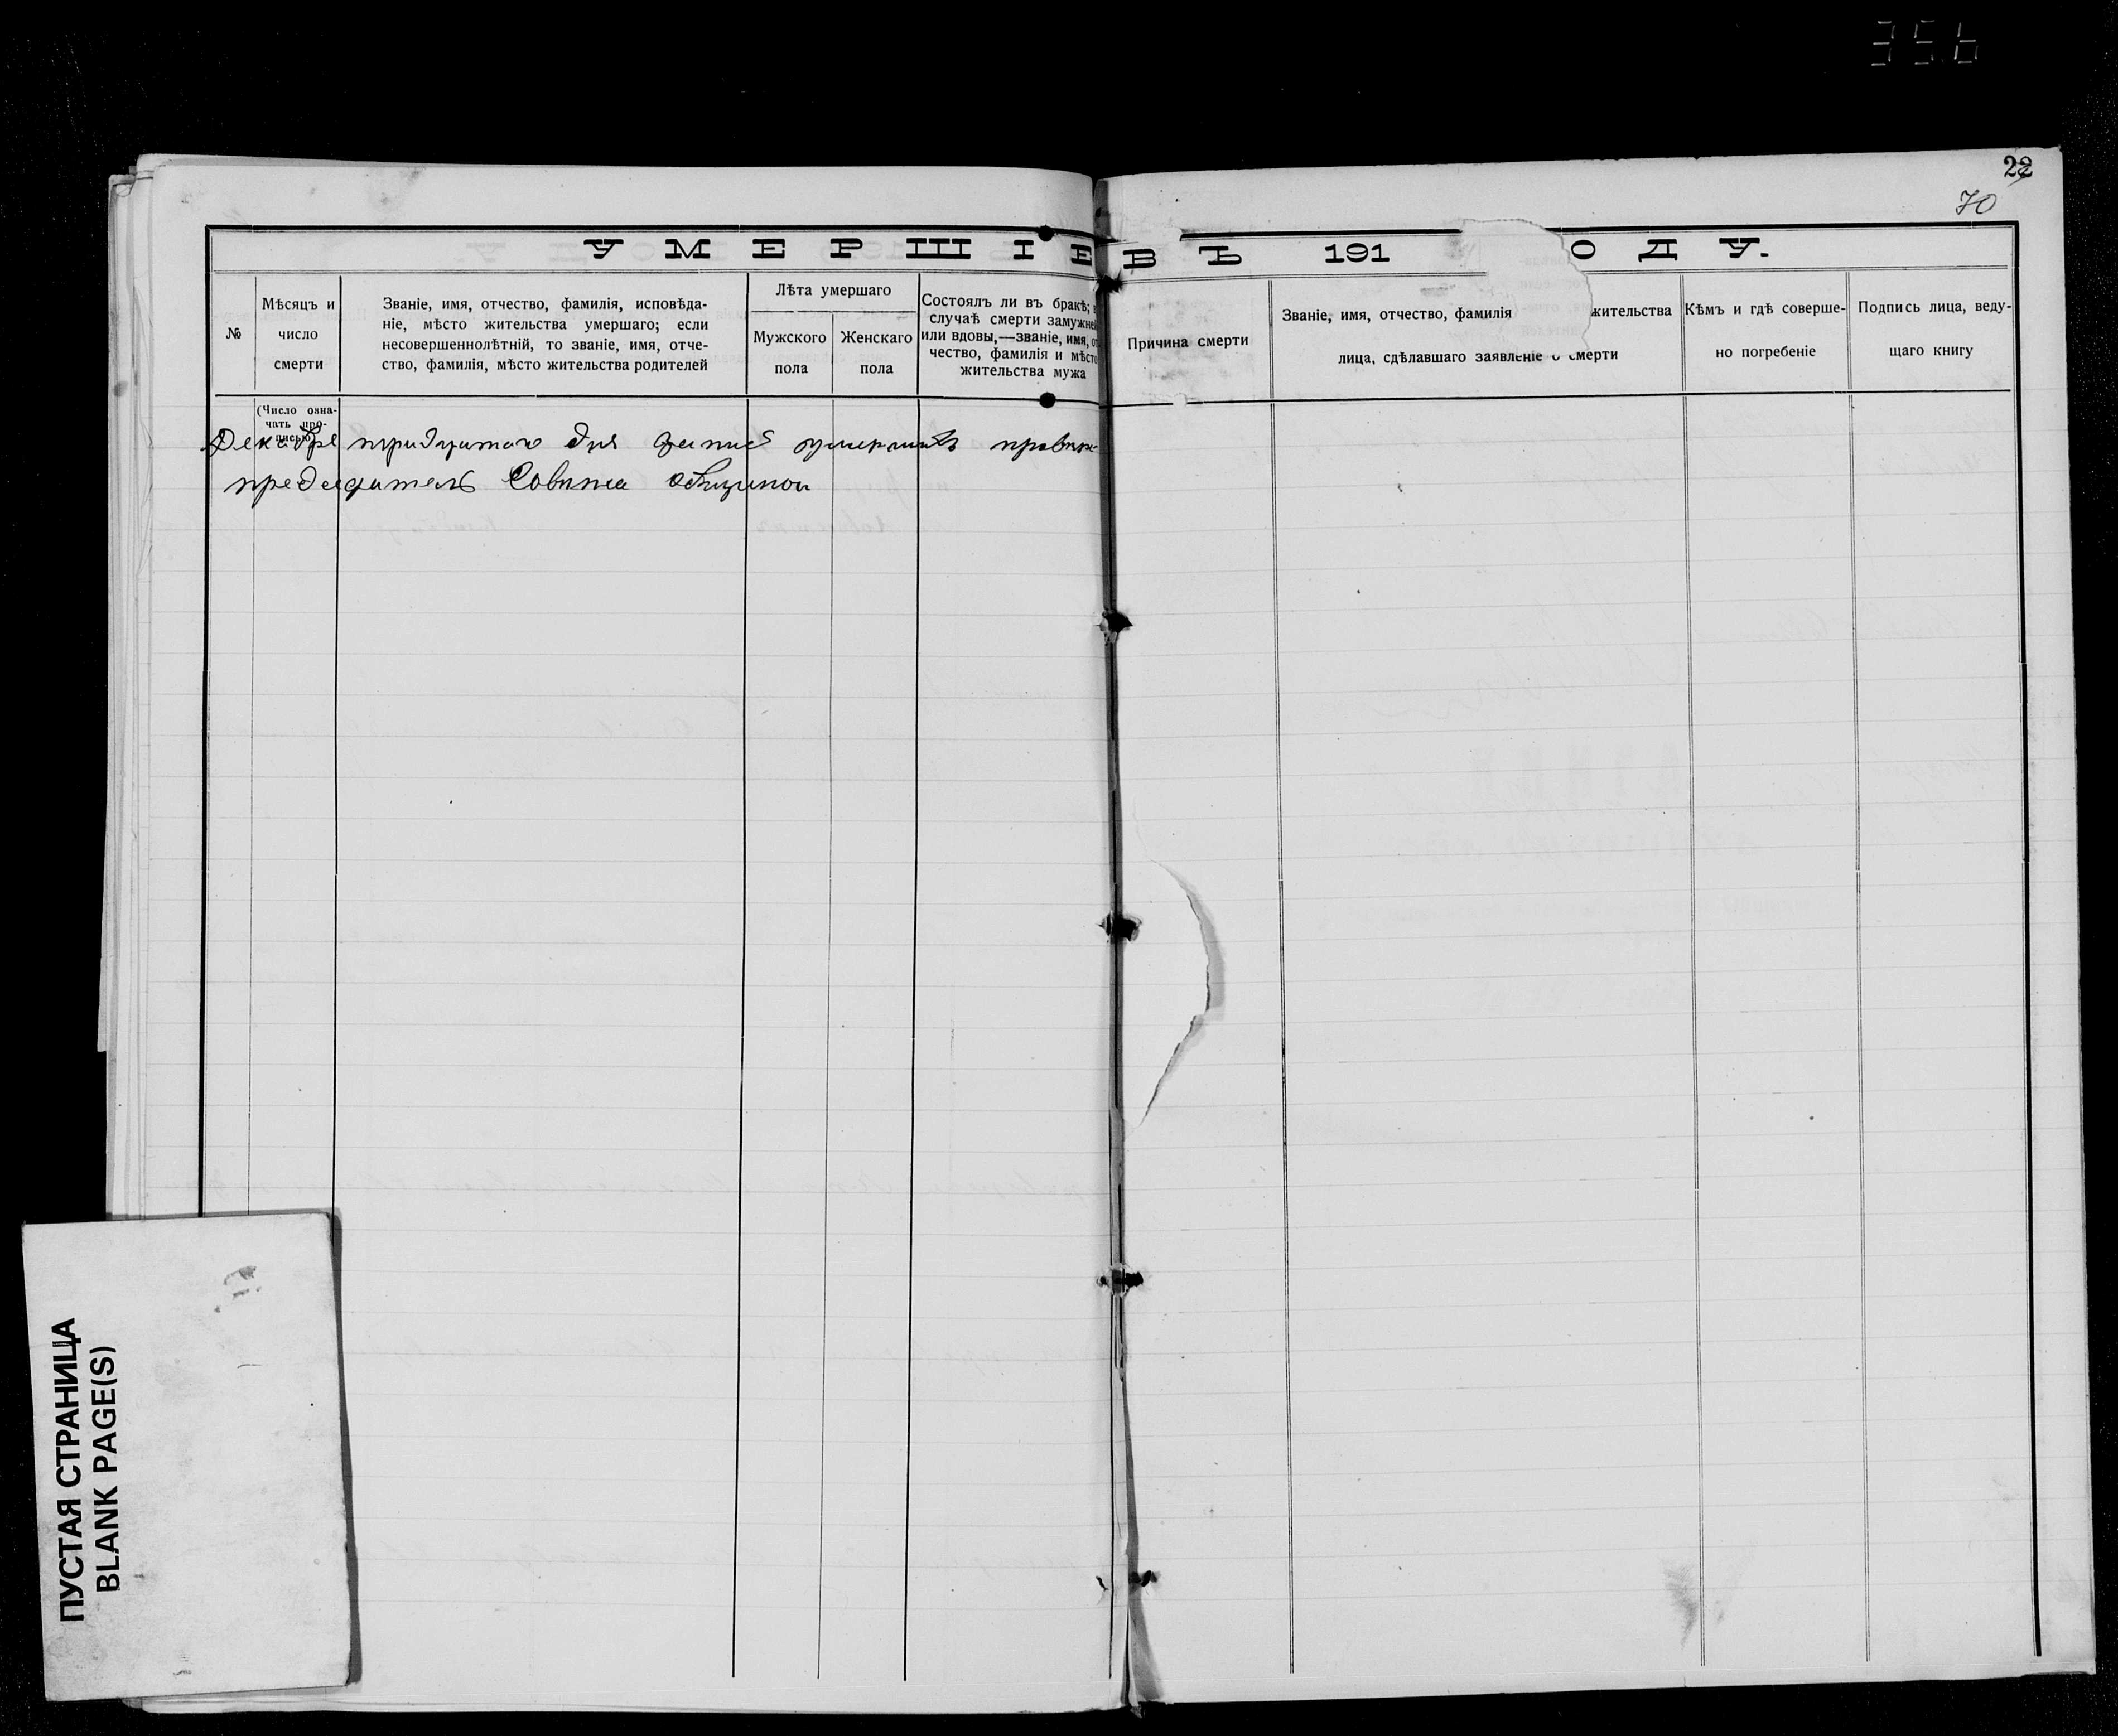 356
22
70
УМЕРШІЕ ВЪ 191 ОДУ.
№
Мѣсяцъ и
число
смерти
Званіе, имя, отчество, фамилія, исповѣда-
ніе, мѣсто жительства умершаго; если
несовершеннолѣтній, то званіе, имя, отче-
ство, фамилія, мѣсто жительства родителей
Лѣта умершаго
Мужского
пола
Женскаго
пола
Состоялъ ли въ бракѣ;
случаѣ смерти замужней
или вдовы,—званіе, имя, от
чество, фамилія и мѣсто
жительства мужа
Причина смерти
Званіе, имя, отчество, фамилія жительства
лица, сдѣлавшаго заявленіе о смерти
Кѣмъ и гдѣ соверше-
но погребеніе
Подпись лица, веду-
щаго книгу
(Число озна-
чать про-
писью)
Декабря тридцатаго дня запись умершихъ
председатель Совета общины
ПУСТАЯ СТРАНИЦА
BLANK PAGE(S)